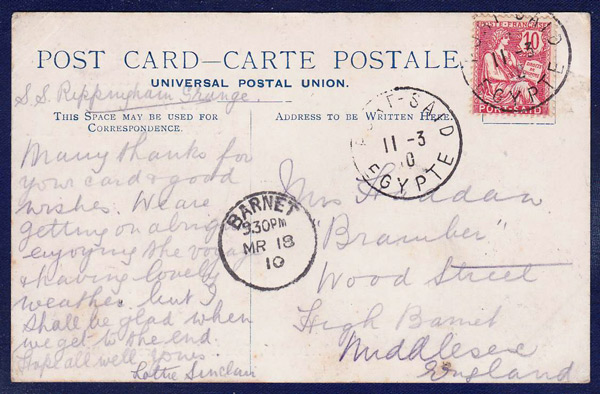 POSTE FRANÇAISE
10
PORT-SAID
PORT-SAID
11 -3
EGYPTE
POST CARD—CARTE POSTALE
UNIVERSAL POSTAL UNION.
S.S. Rippingham Grange.
THIS SPACE MAY BE USED FOR
CORRESPONDENCE.
ADDRESS TO BE WRITTEN HERE.
PORT-SAID
11 -3
10
EGYPTE
Many thanks for
your card & good
wishes. We are
getting on alright
enjoying the voyage
& having lovely
weather but I
shall be glad when
we get to the end
Hope all well yours
Lottie Sinclair
BARNET
9.30PM
MR 18
10
Mrs
"Bramber"
Wood Street
High Barnet
Middlesex
England